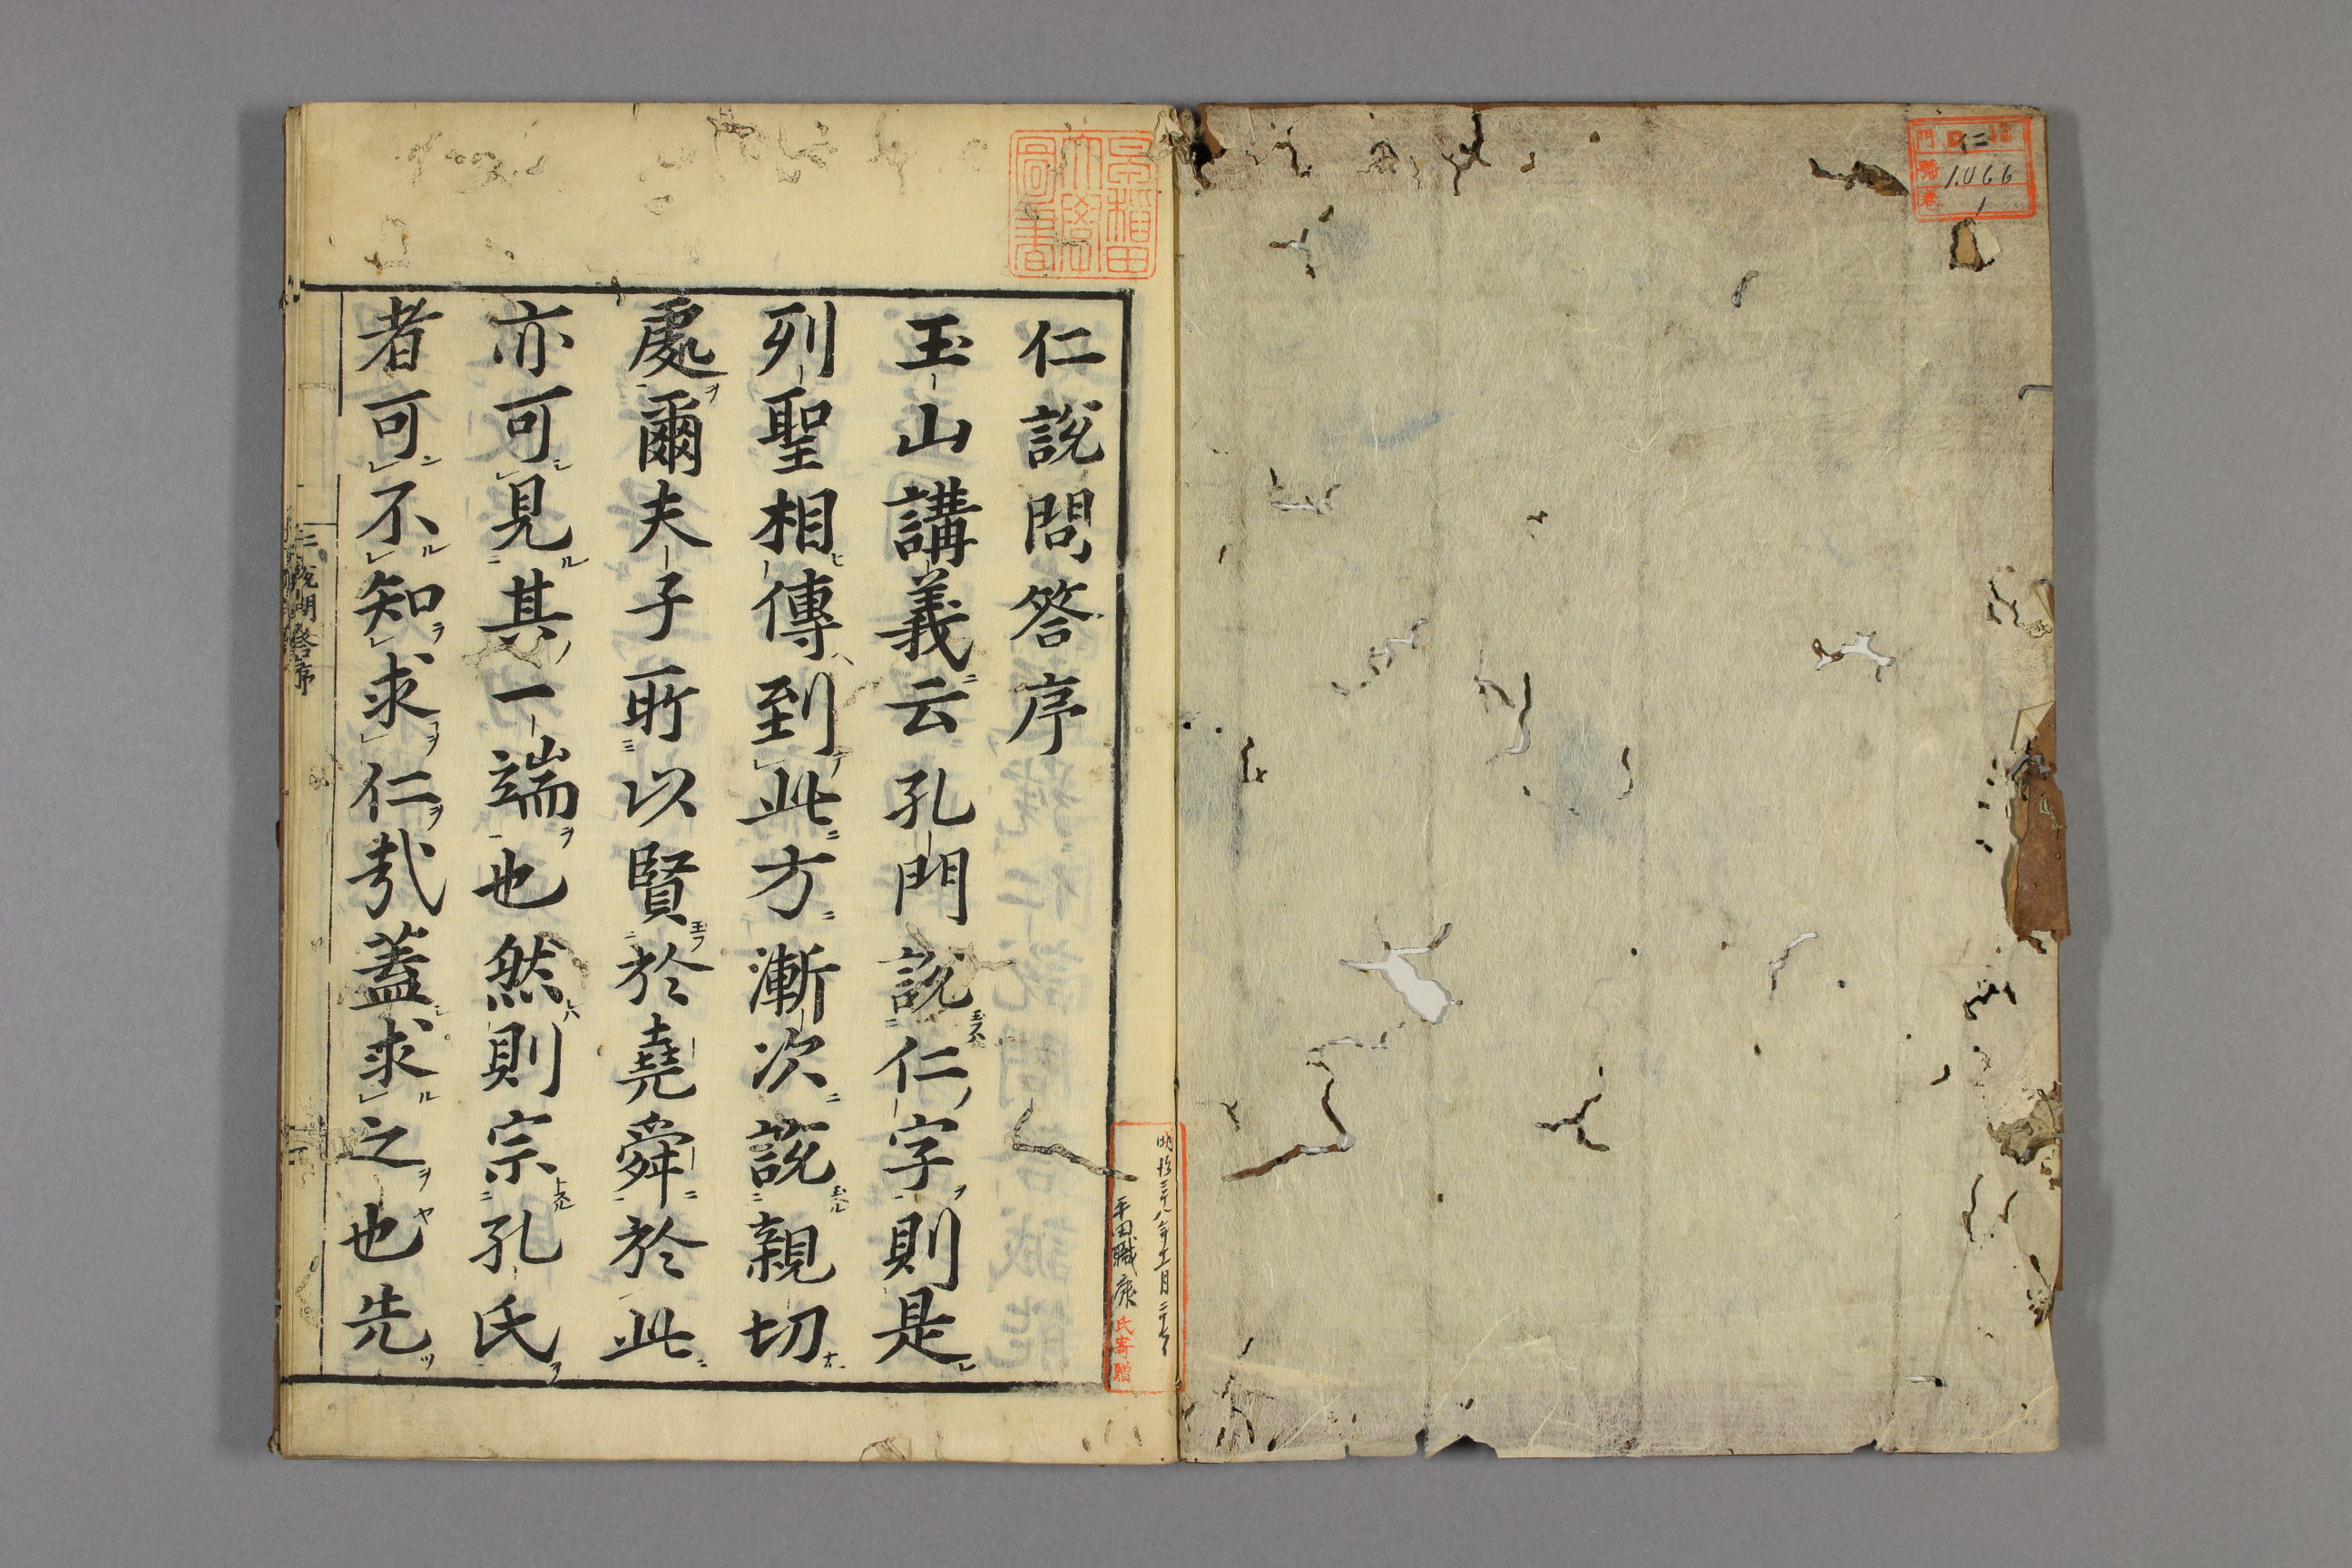 門 ロ二 12
號 1066
卷 1
早稲田大學圖書
仁說問答序
玉山講義云孔門說仁字則是
列聖相傳到此方漸次說親切
處爾夫子所以賢於堯舜於此
亦可見其一端也然則宗孔氏
者可不知求仁哉蓋求之也先
仁說問答序
明治三十八年十一月二十
平田職康氏寄贈